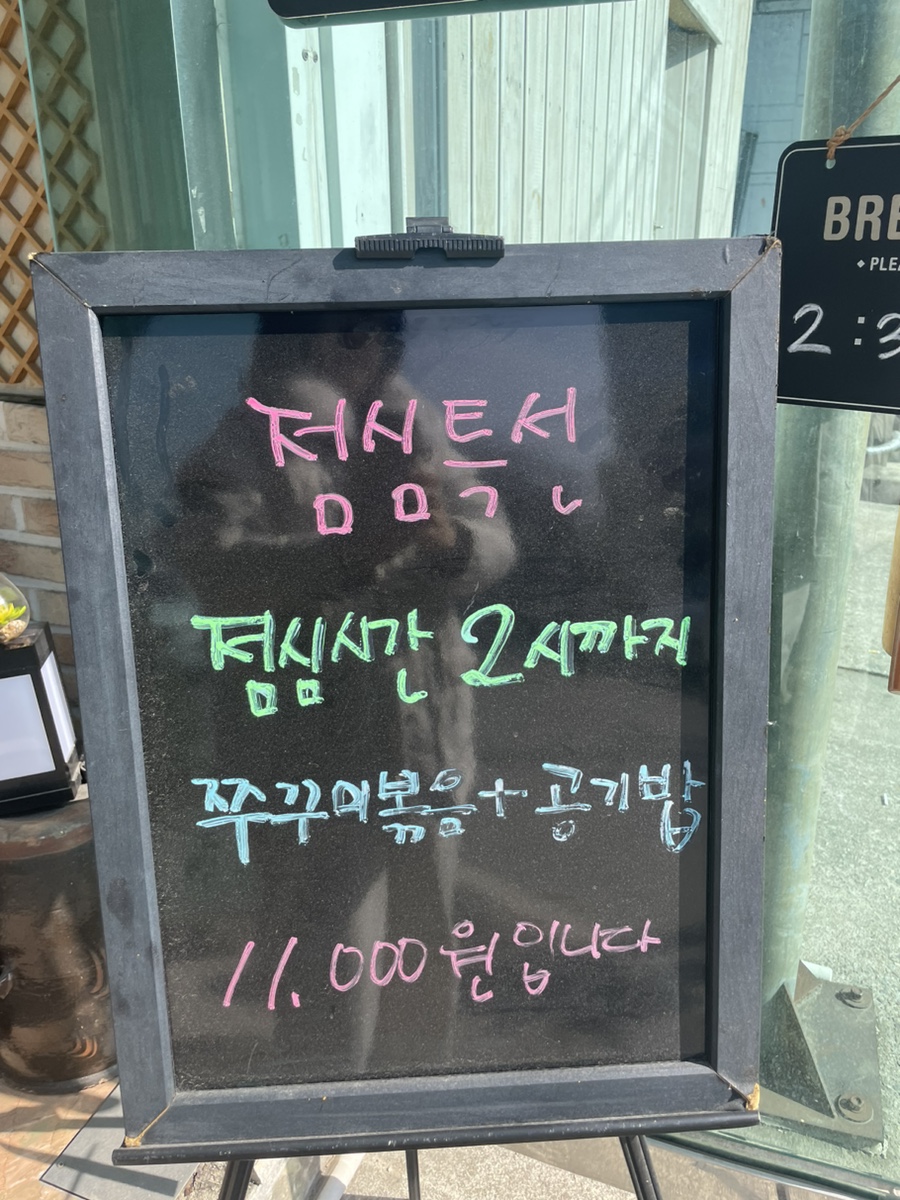 점심특선
점심시간 2시까지
쭈꾸미볶음+공기밥
11.000원입니다
BRE
PLEA
2:3